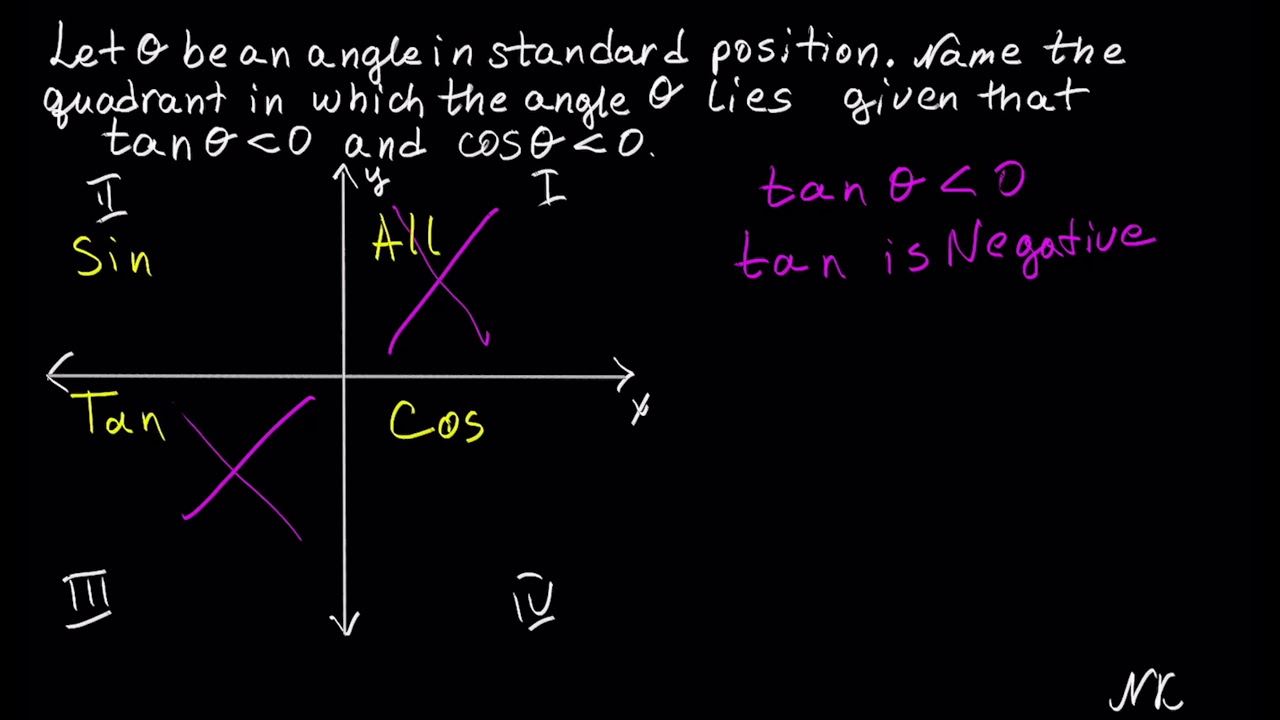 Let θ be an angle in standard position. Name the
quadrant in which the angle θ lies given that
tan θ < 0 and cos θ < 0.
II
y
I
tan θ < 0
Sin
All
tan is Negative
Tan
Cos
x
III
IV
NK